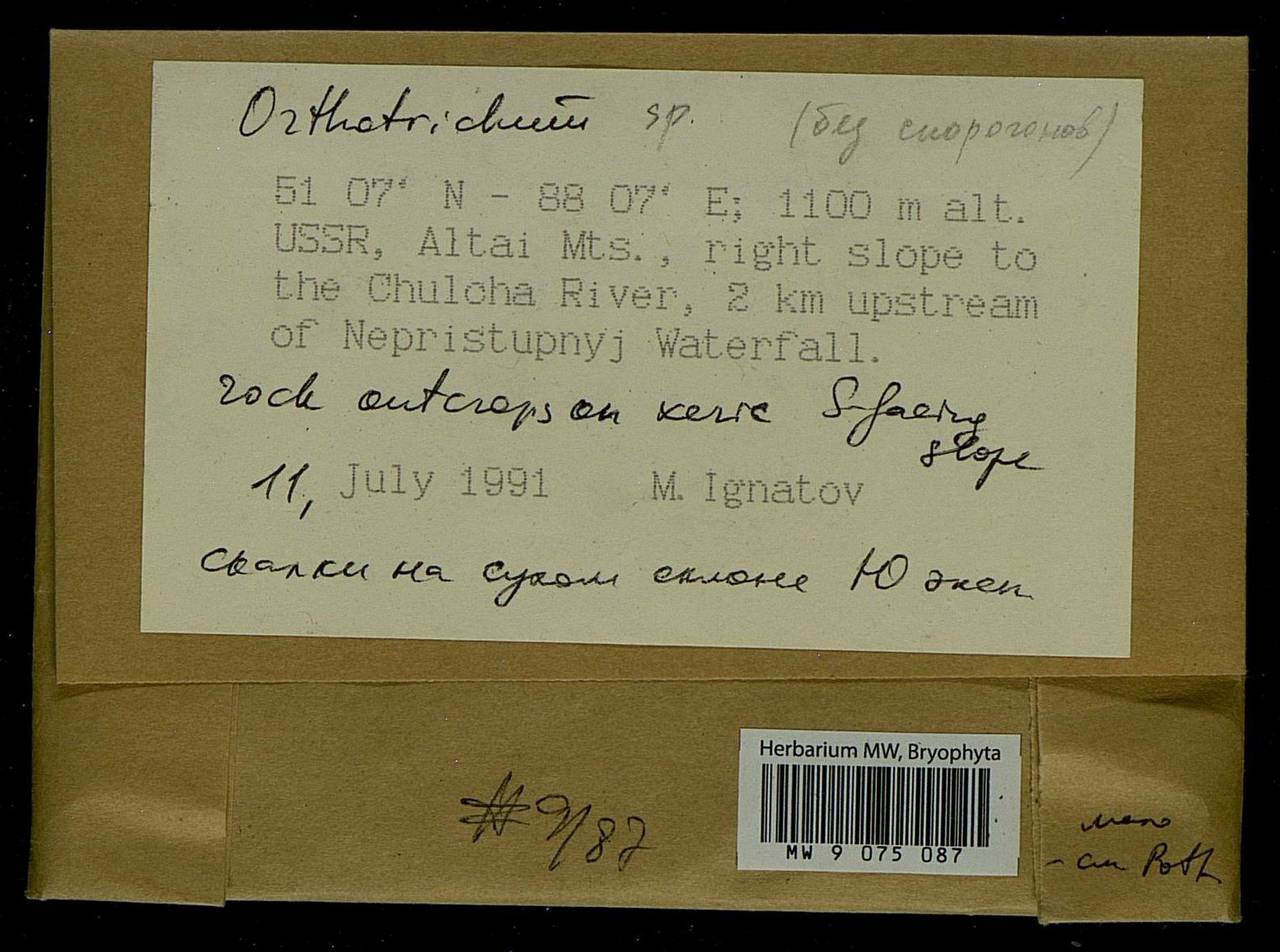 Orthotrichum sp. (без спорогонов)
51 07' N - 88 07' E; 1100 m alt.
USSR, Altai Mts., right slope to
the Chulcha River, 2 km upstream
of Nepristupnyj Waterfall.
rock outcrops on xeric S-facing
slope
11, July 1991 M. Ignatov
скалки на сухом склоне Ю эксп
Herbarium MW, Bryophyta
MW 9 075 087
# 9/87
мало